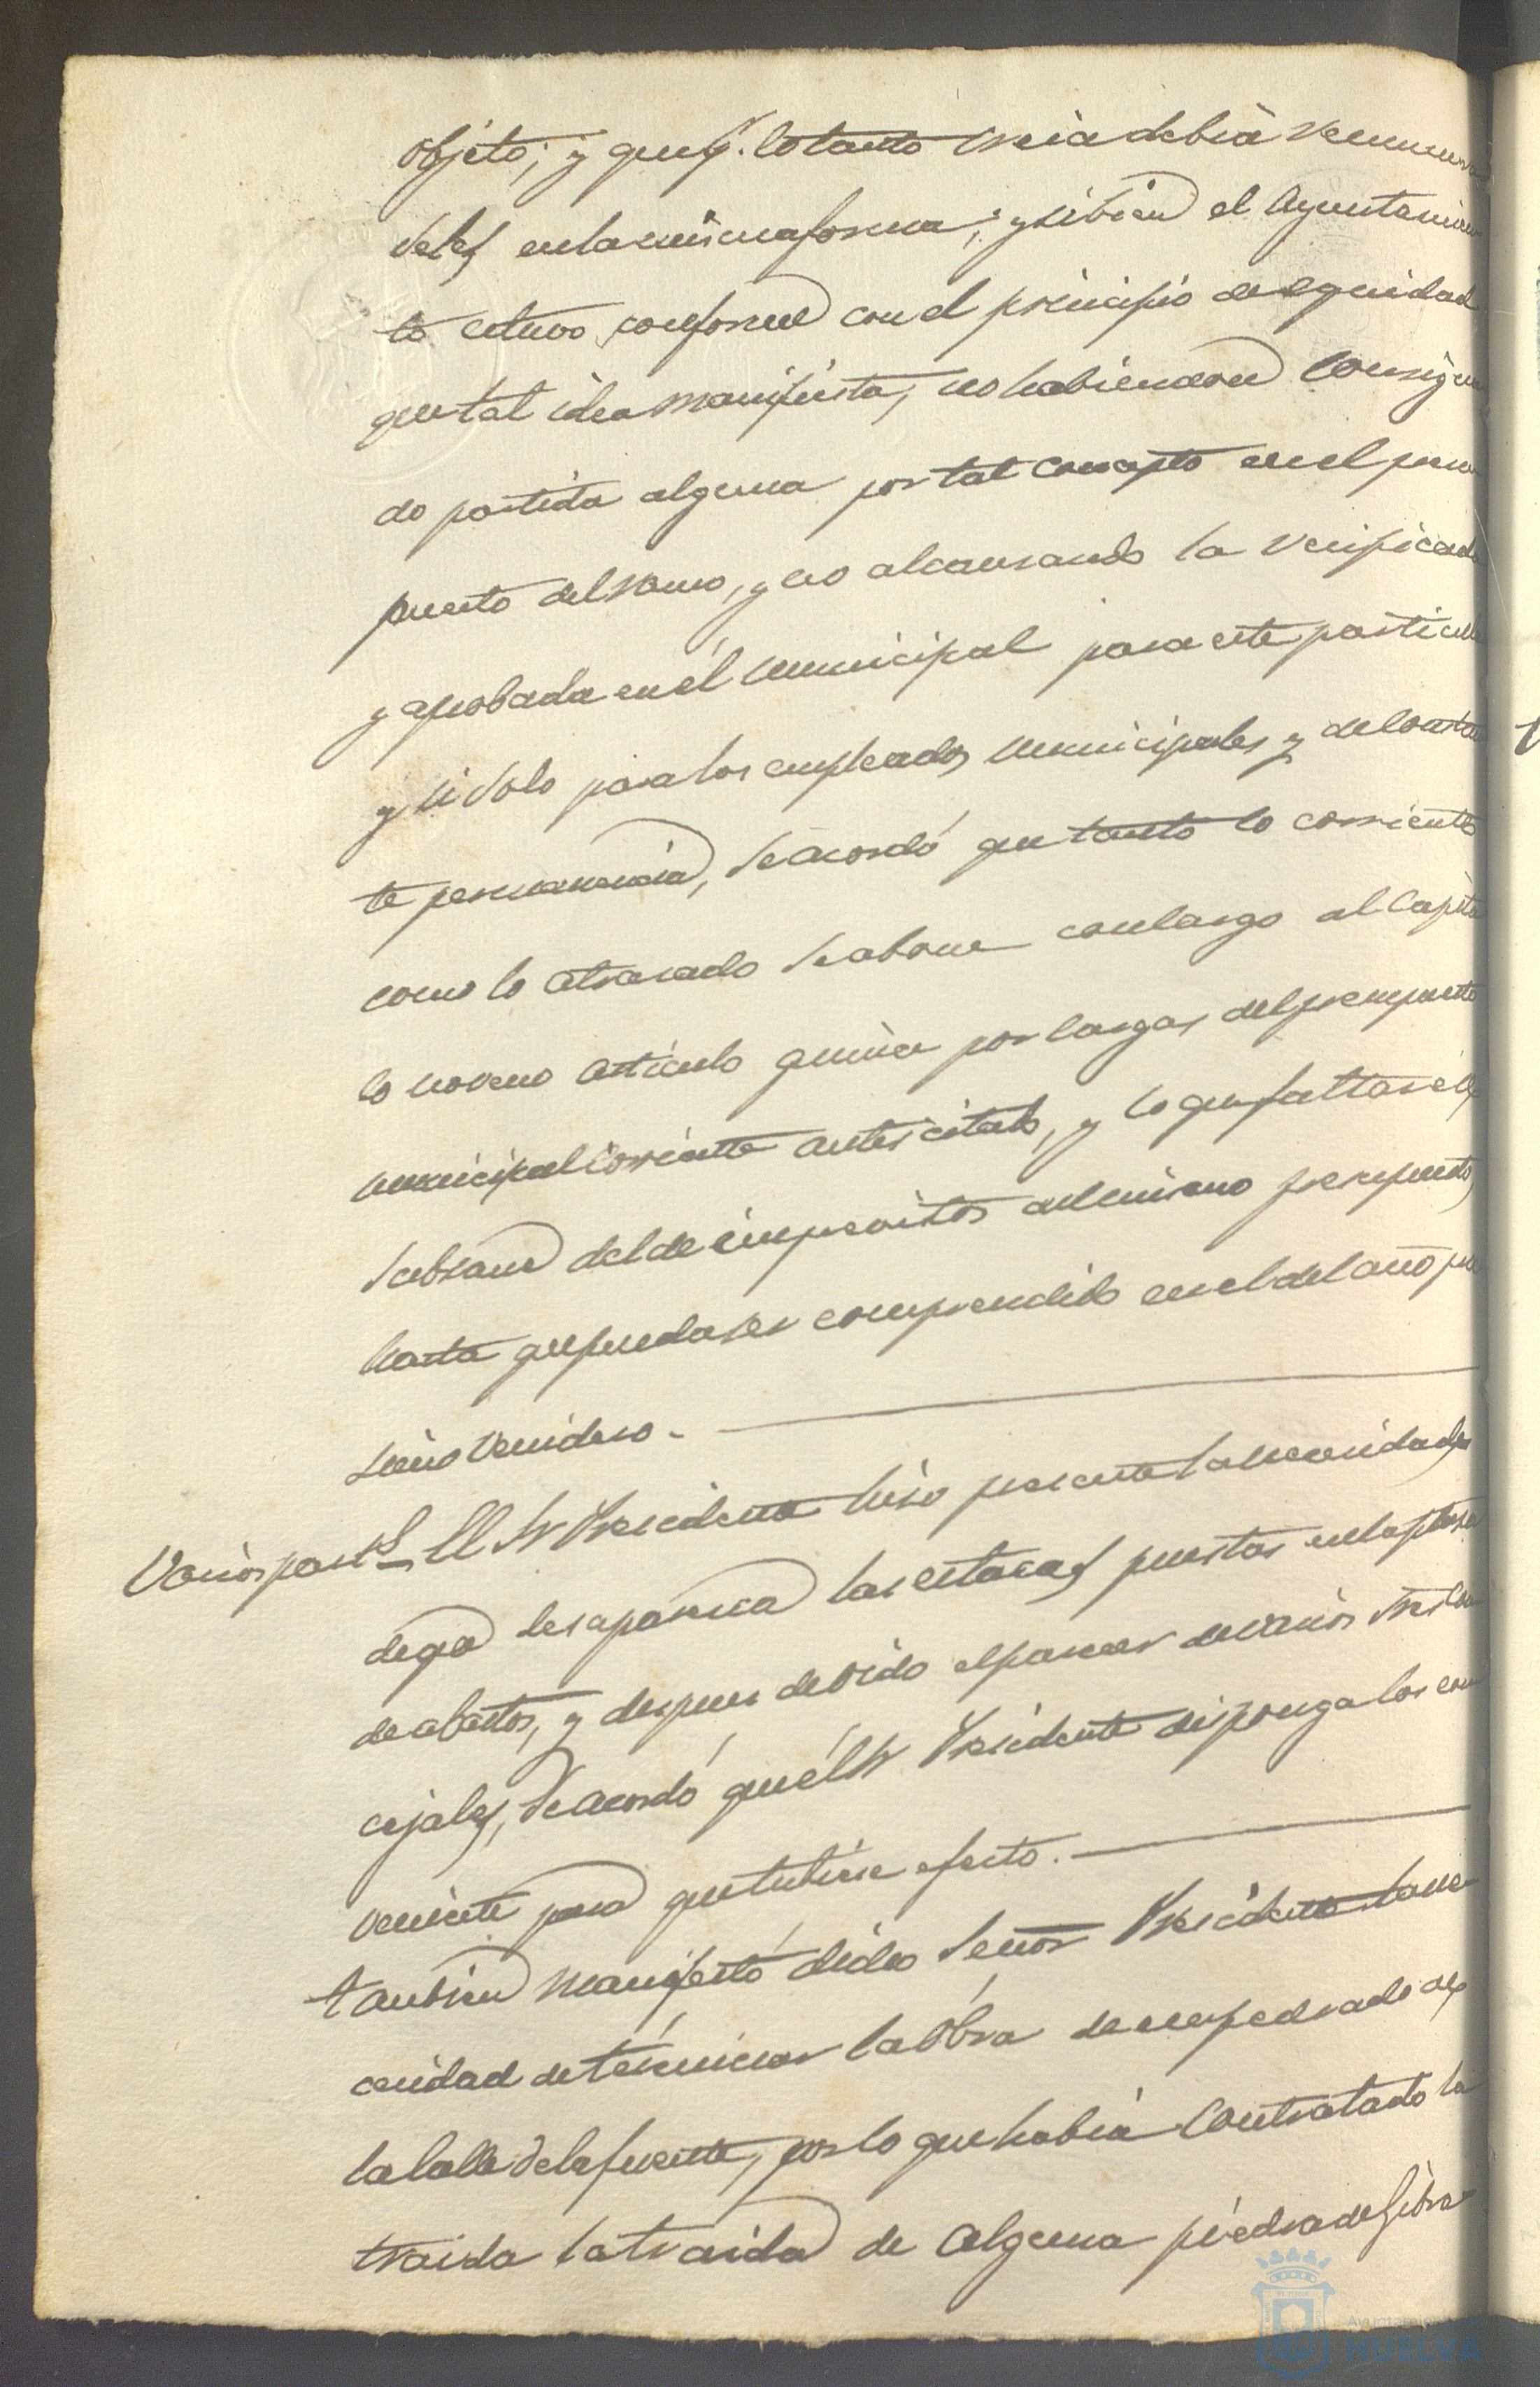 objeto; y que p.r lo tanto creia debia remunera
seles en la misma forma; y si bien el Ayuntamien
to estuvo conforme con el principio de equidad
que tal idea manifiesta, no habiendose consigna
do partida alguna por tal concepto en el presu
puesto del ramo, y no alcansando la verificada
y aprobada en él municipal para este particular
y si solo para los empleados municipales y de constan
te permanencia, se acordó que tanto lo corriente
como lo atrasado se abone con cargo al Capitu
lo noveno articulo quince por cargas del presupuesto
municipal corriente antes citado, y lo que faltare
del de imprevistos del mismo presupuesto,
hasta que pueda ser comprendido en el del año pro
simo venidero.
Varios part.s El Sr Presidente hiso presente la necesidad
de que desaparesca las estacas puestas en la plasa
de abastos, y despues de oido el parecer de varios Sres Con
cejales, se acordó que él Sr Presidente disponga los con
veniente para que tubiese efecto.
Tambien manifestó dicho Señor Presidente la ne
cesidad de términar la óbra de empedrado de
la Calle de la fuente, por lo que habia Contratado la
traida la traida de alguna piedra de Gibra
Ayuntamiento
HUELVA